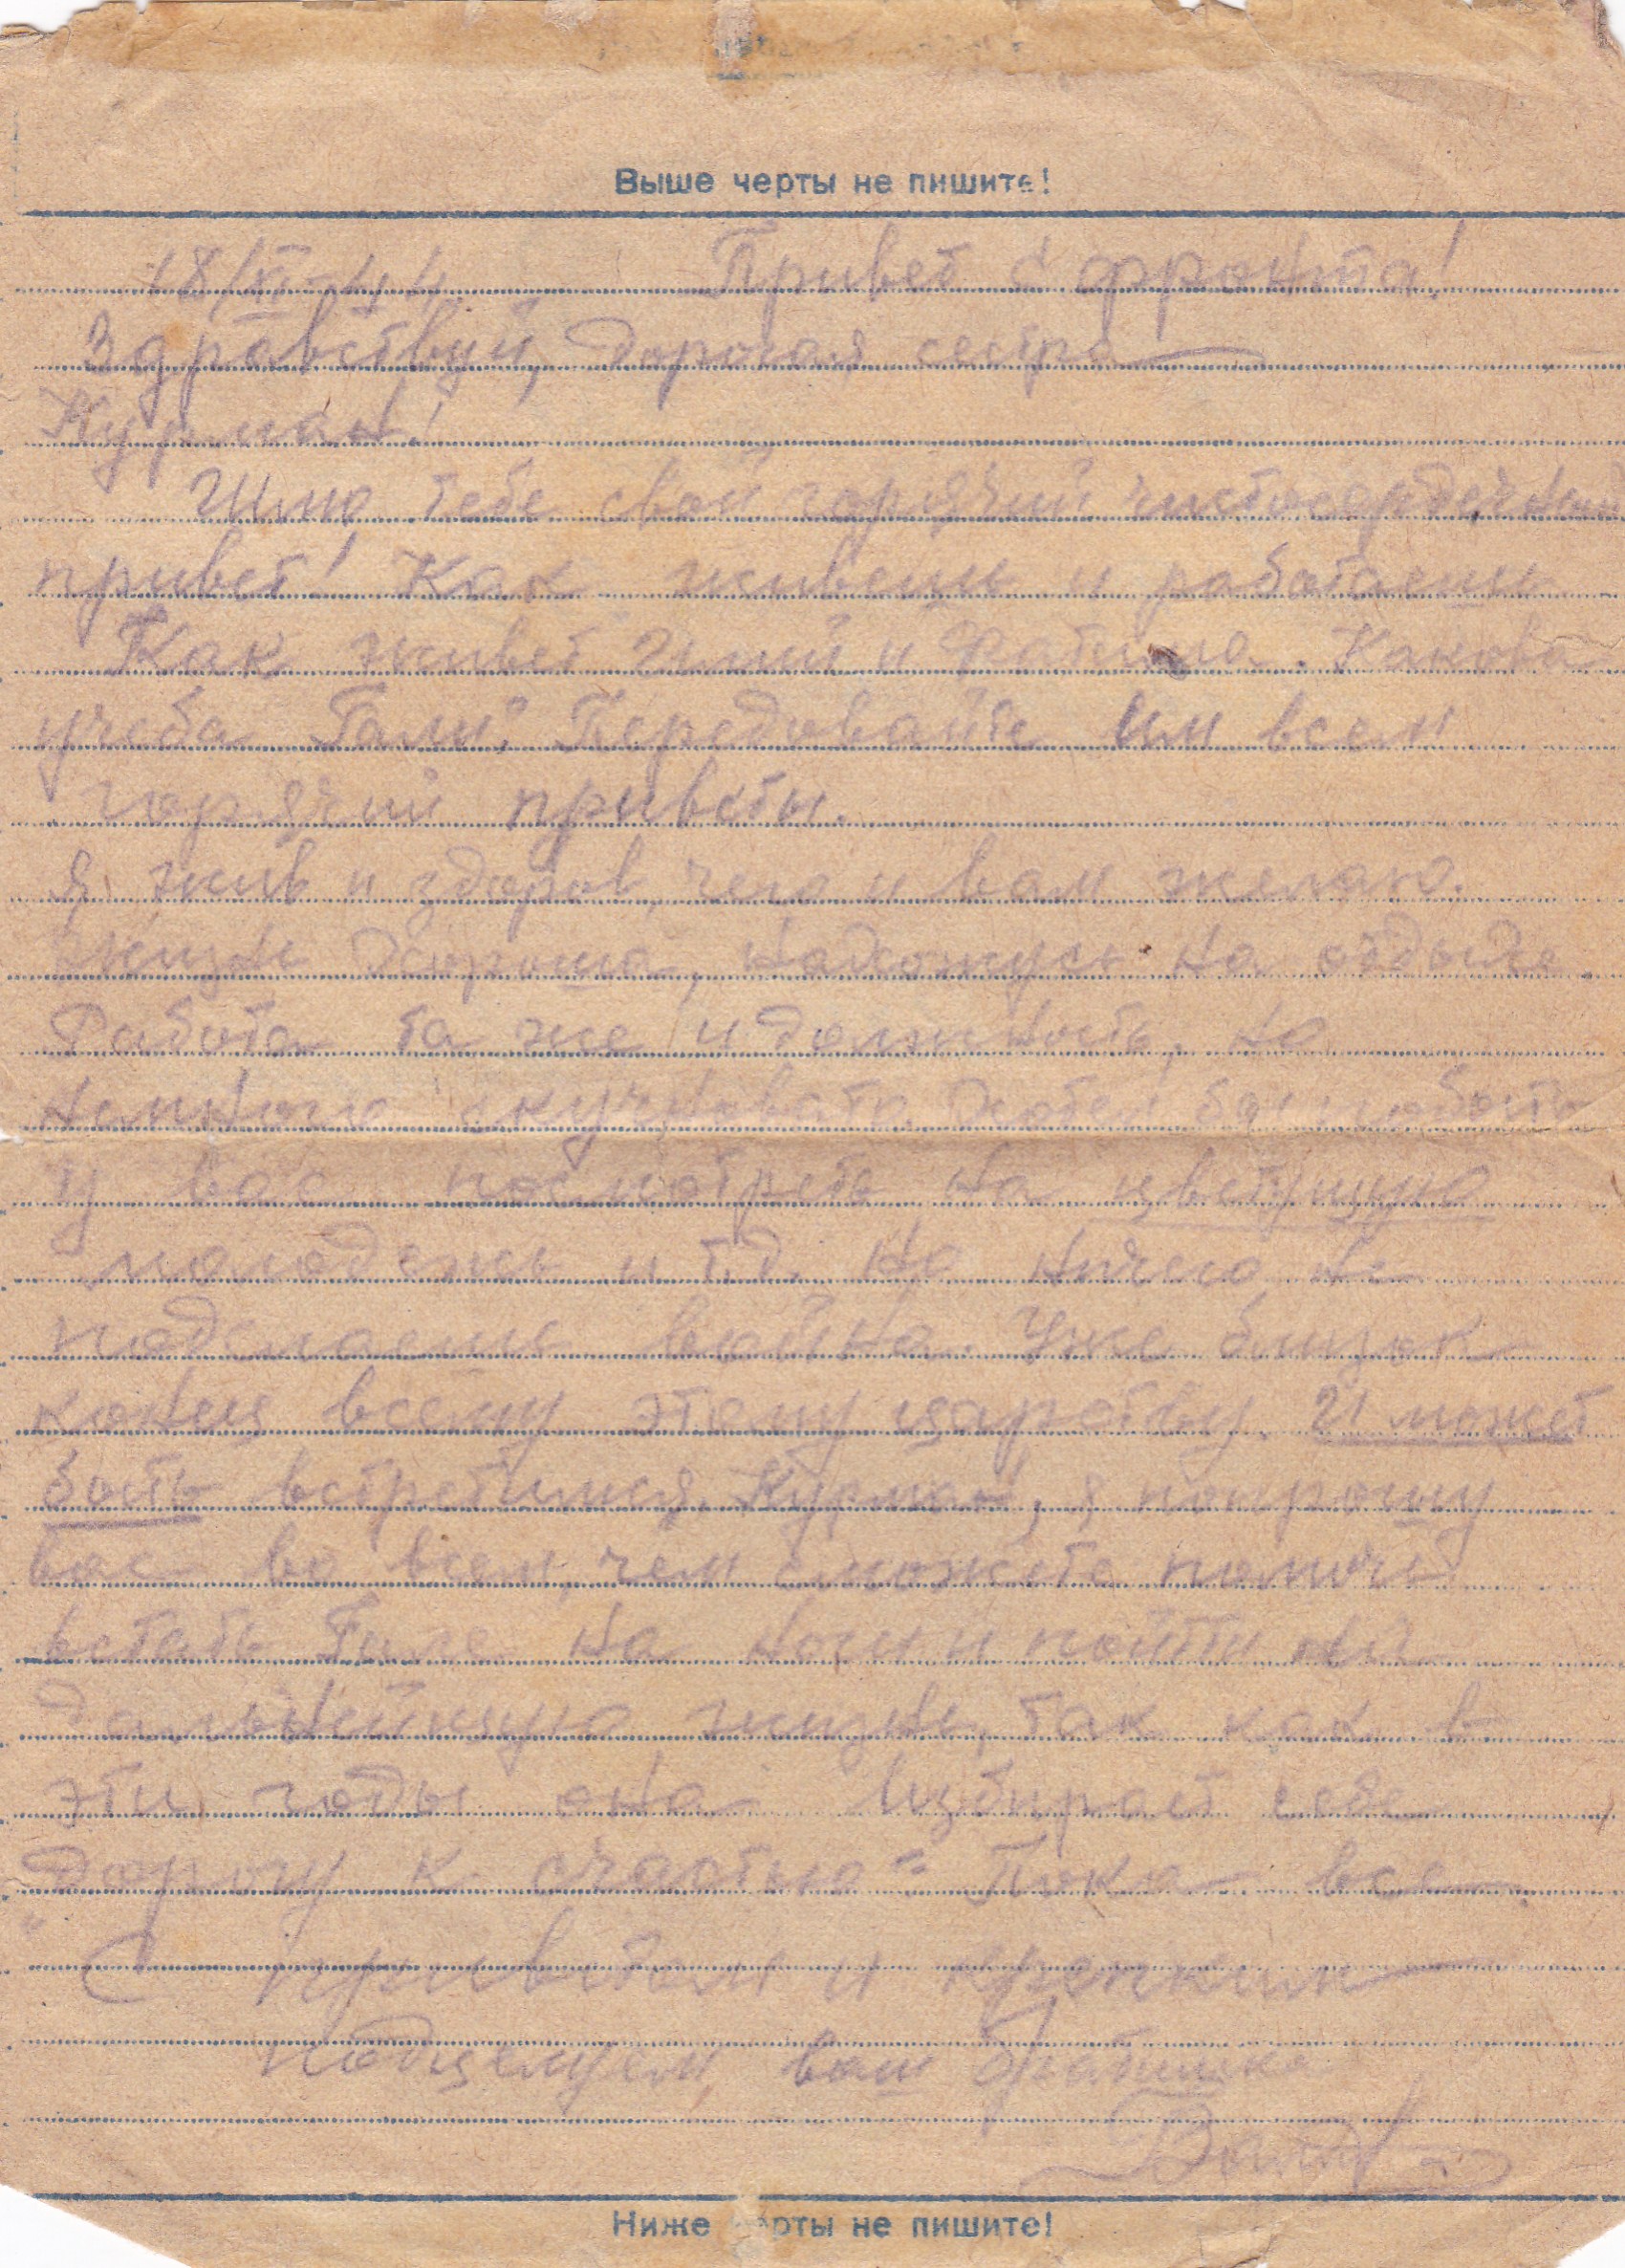 Выше черты не пишите!
18/XI-44 Привет с фронта!
Здравствуй, дорогая сестра
Курман!
Шлю тебе свой горячий чистосердечный
привет! Как живешь и работаешь
Как живет и . Какова
учеба Гали? Передовайте им всем
горячий приветы.
Я жив и здоров, чего и вам желаю.
Жизнь хороша, нахожусь на отдыхе.
Работа та же и должность, но
немного скучновато. Хотел бы побыть
у вас посмотреть на цветущую
молодежь и т.д. Но ничего не
поделаешь война. Уже близок
конец всему этому царству. И может
быть встретимся. Курман, я попрошу
вас во всем, чем сможете помочь
встать Гале на ноги и пойти на
дальнейшую жизнь, так как в
эти годы она избирает себе
дорогу к счастью = Пока все.
С приветом и крепким
поцелуем, ваш братишка
Ниже черты не пишите!